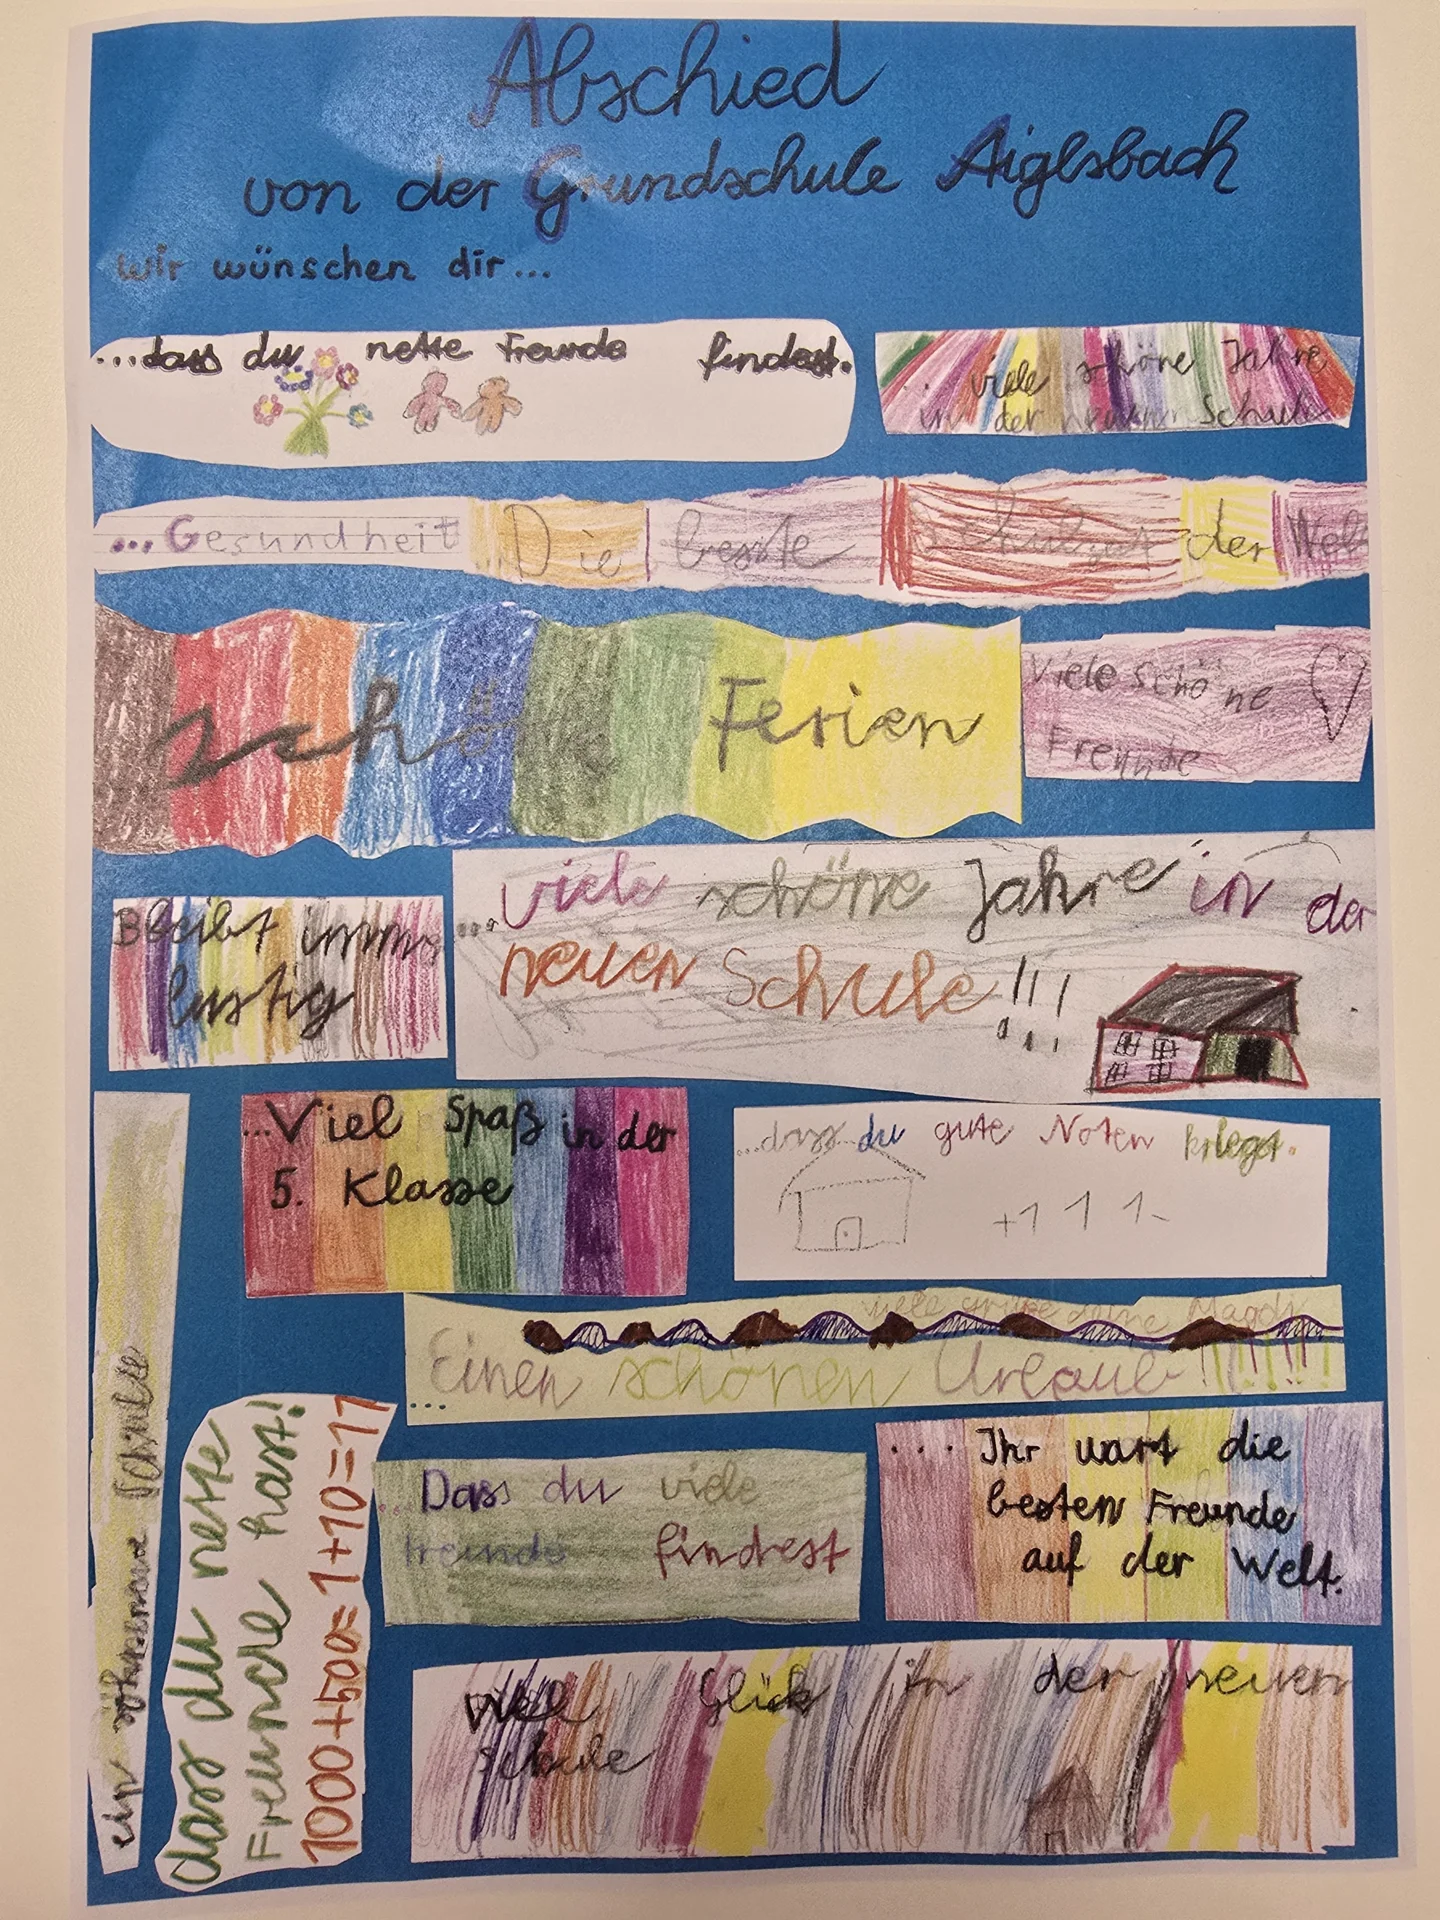 Abschied
von der Grundschule Aiglsbach
Wir wünschen dir...
...dass du nette Freunde findest.
... viele schöne Jahre
in der neuen Schule
...Gesundheit
Die beste
der Welt
schöne Ferien
Viele schöne
Freunde
Bleibt immer
lustig
...viele schöne Jahre in der
neuen Schule!!!
...Viel Spaß in der
5. Klasse
...dass du gute Noten kriegst.
+1 1 1-
viele grüße deine
...Einen schönen Urlaub
ein schöne Schule
dass du neste
Freunde hast!
1000+500=1+10=11
...Dass du viele
freunde findest
.... Ihr wart die
besten Freunde
auf der Welt.
viel Glück in der neuen
schule